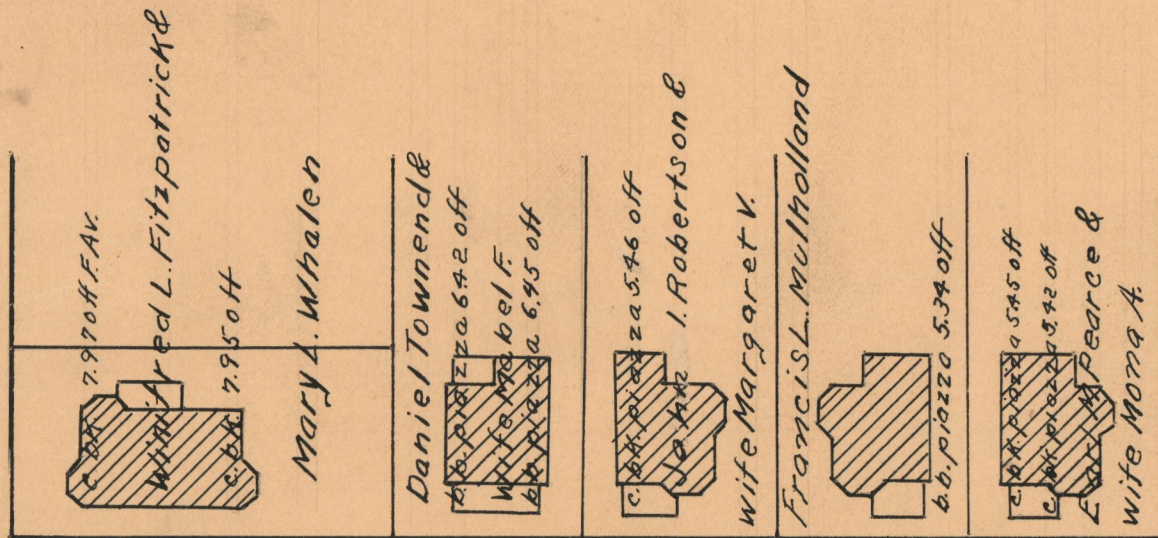 c. bk. 7.97 off F. Av.
Winifred L. Fitzpatrick &
c. bk. 7.95 off
Mary L. Whalen
Daniel Townend &
b.b. piazza 6.42 off
wife Mabel F.
b.b. piazza 6.45 off
c. bk. piazza 5.46 off
John I. Robertson &
wife Margaret V.
Francis L. Mulholland
b.b. piazza 5.34 off
c. bk. piazza 5.45 off
c. bk. piazza 5.42 off
Earl Pearce &
wife Mona A.